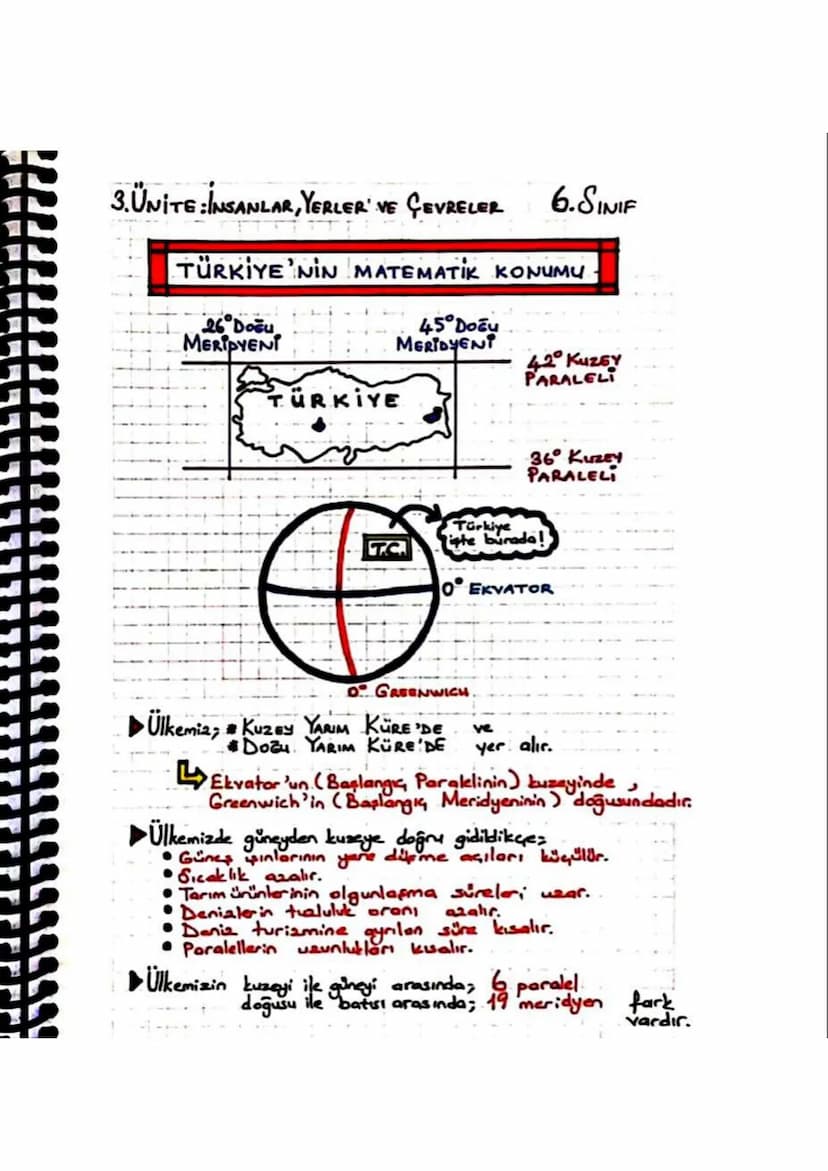 3.ÜNİTE:İNSANLAR, YERLER VE ÇEVRELER 6.SINIF
TÜRKİYE'NİN MATEMATİK KONUMU
26° DOĞU MERİDYENİ
45° DOĞU MERİDYENİ
42° KUZEY PARALELİ
TÜRKİYE
36° KUZEY PARALELİ
Türkiye
işte burada!
T.C.
0° EKVATOR
0° GREENWICH
Ülkemiz; * KUZEY YARIM KÜRE'DE ve
* DOĞU YARIM KÜRE'DE yer alır.
Ekvator'un (Başlangıç Paralelinin) kuzeyinde,
Greenwich'in (Başlangıç Meridyeninin) doğusundadır.
Ülkemizde güneyden kuzeye doğru gidildikçe;
• Güneş ışınlarının yere düşme açıları küçülür.
• Sıcaklık azalır.
• Tarım ürünlerinin olgunlaşma süreleri uzar.
• Denizlerin tuzluluk oranı azalır.
• Deniz turizmine ayrılan süre kısalır.
• Paralellerin uzunlukları kısalır.
Ülkemizin kuzeyi ile güneyi arasında; 6 paralel
doğusu ile batısı arasında; 19 meridyen fark
vardır.